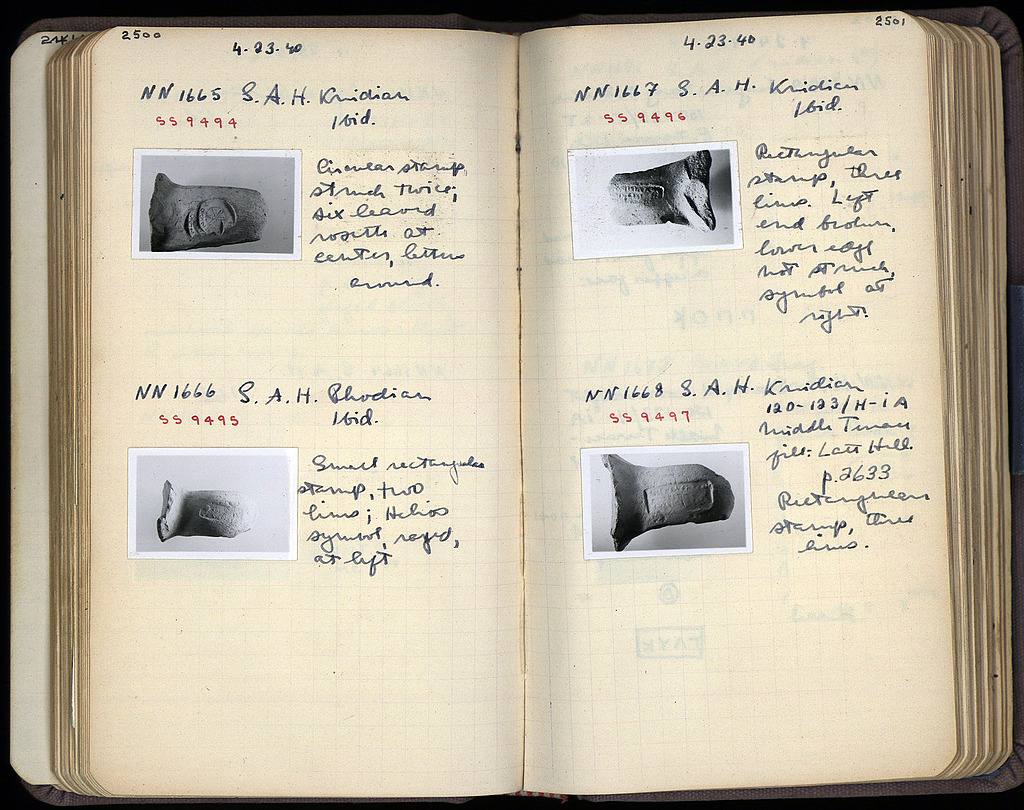 2500
4-23-40
NN 1665 S. A. H. Knidian
SS 9494 Ibid.
Circular stamp,
struck twice;
six leaved
rosette at
center, letters
around.
NN 1666 S. A. H. Rhodian
SS 9495 Ibid.
Small rectangular
stamp, two
lines; Helios
symbol, rayed,
at left
2501
4-23-40
NN 1667 S. A. H. Knidian
SS 9496 Ibid.
Rectangular
stamp, three
lines. Left
end broken,
lower edge
not struck,
symbol at
right.
NN 1668 S. A. H. Knidian
SS 9497 120-123/H-IA
Middle
fill: Hill.
p. 2633
Rectangular
stamp, three
lines.